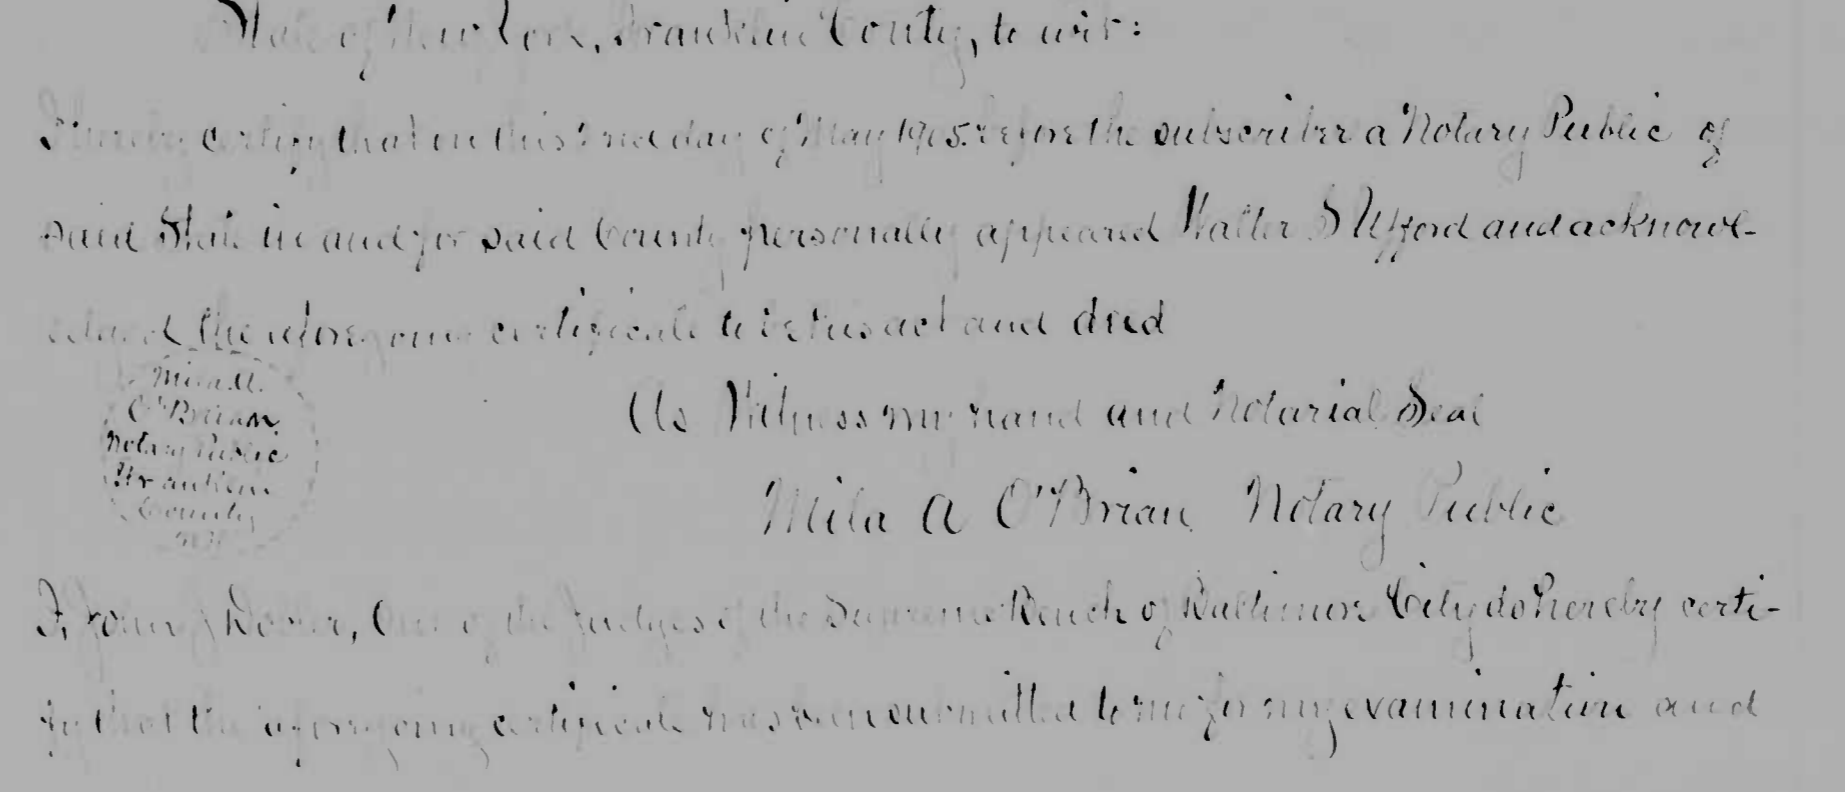 State of New York, Franklin County, to wit:
I hereby certify that on this day of May 1905 before the subscriber a Notary Public of
said State in and for said County personally appeared Walter S Ufford and acknowl-
edged the aforegoing certificate to be his act and deed
As Witness my hand and Notarial Seal
Mila A.
O'Brian
Notary Public
Franklin
County
Mila A O'Brian Notary Public
I, one of the Judges of the Supreme Bench of Baltimore City do hereby certi-
fy that the aforegoing certificate has been submitted to me for my examination and